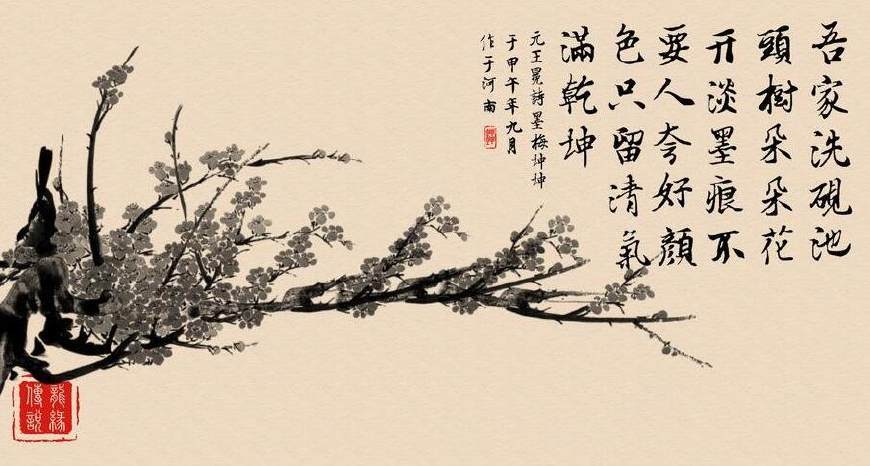 吾家洗硯池
頭樹朵朵花
开淡墨痕不
要人夸好顔
色只留清氣
滿乾坤
元王冕詩墨梅坤坤
于甲午年九月
作于河南
龍緣
傳説